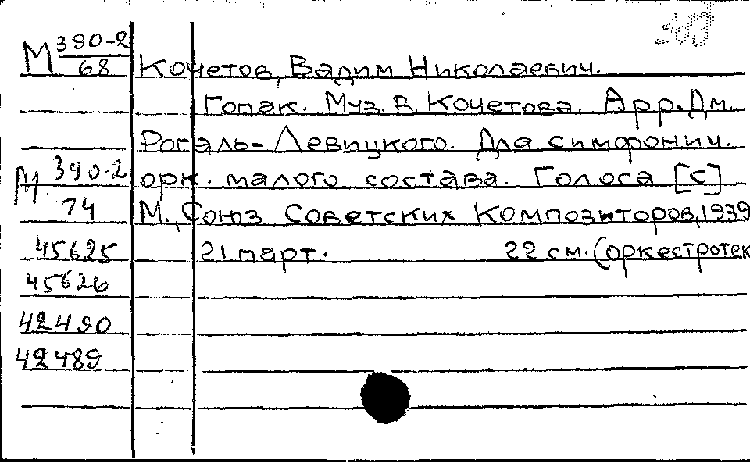 М 390-2
68
Кочетов, Вадим Николаевич.
Гопак. Муз. В. Кочетова. Арр. Дм.
Рогаль-Левицкого. Для симфонич.
М 390-2 орк. малого состава. Голоса [с]
74 М., Союз Советских Композиторов, 1939
45625 21 парт. 22 см. (оркестротек
45626
42490
42489